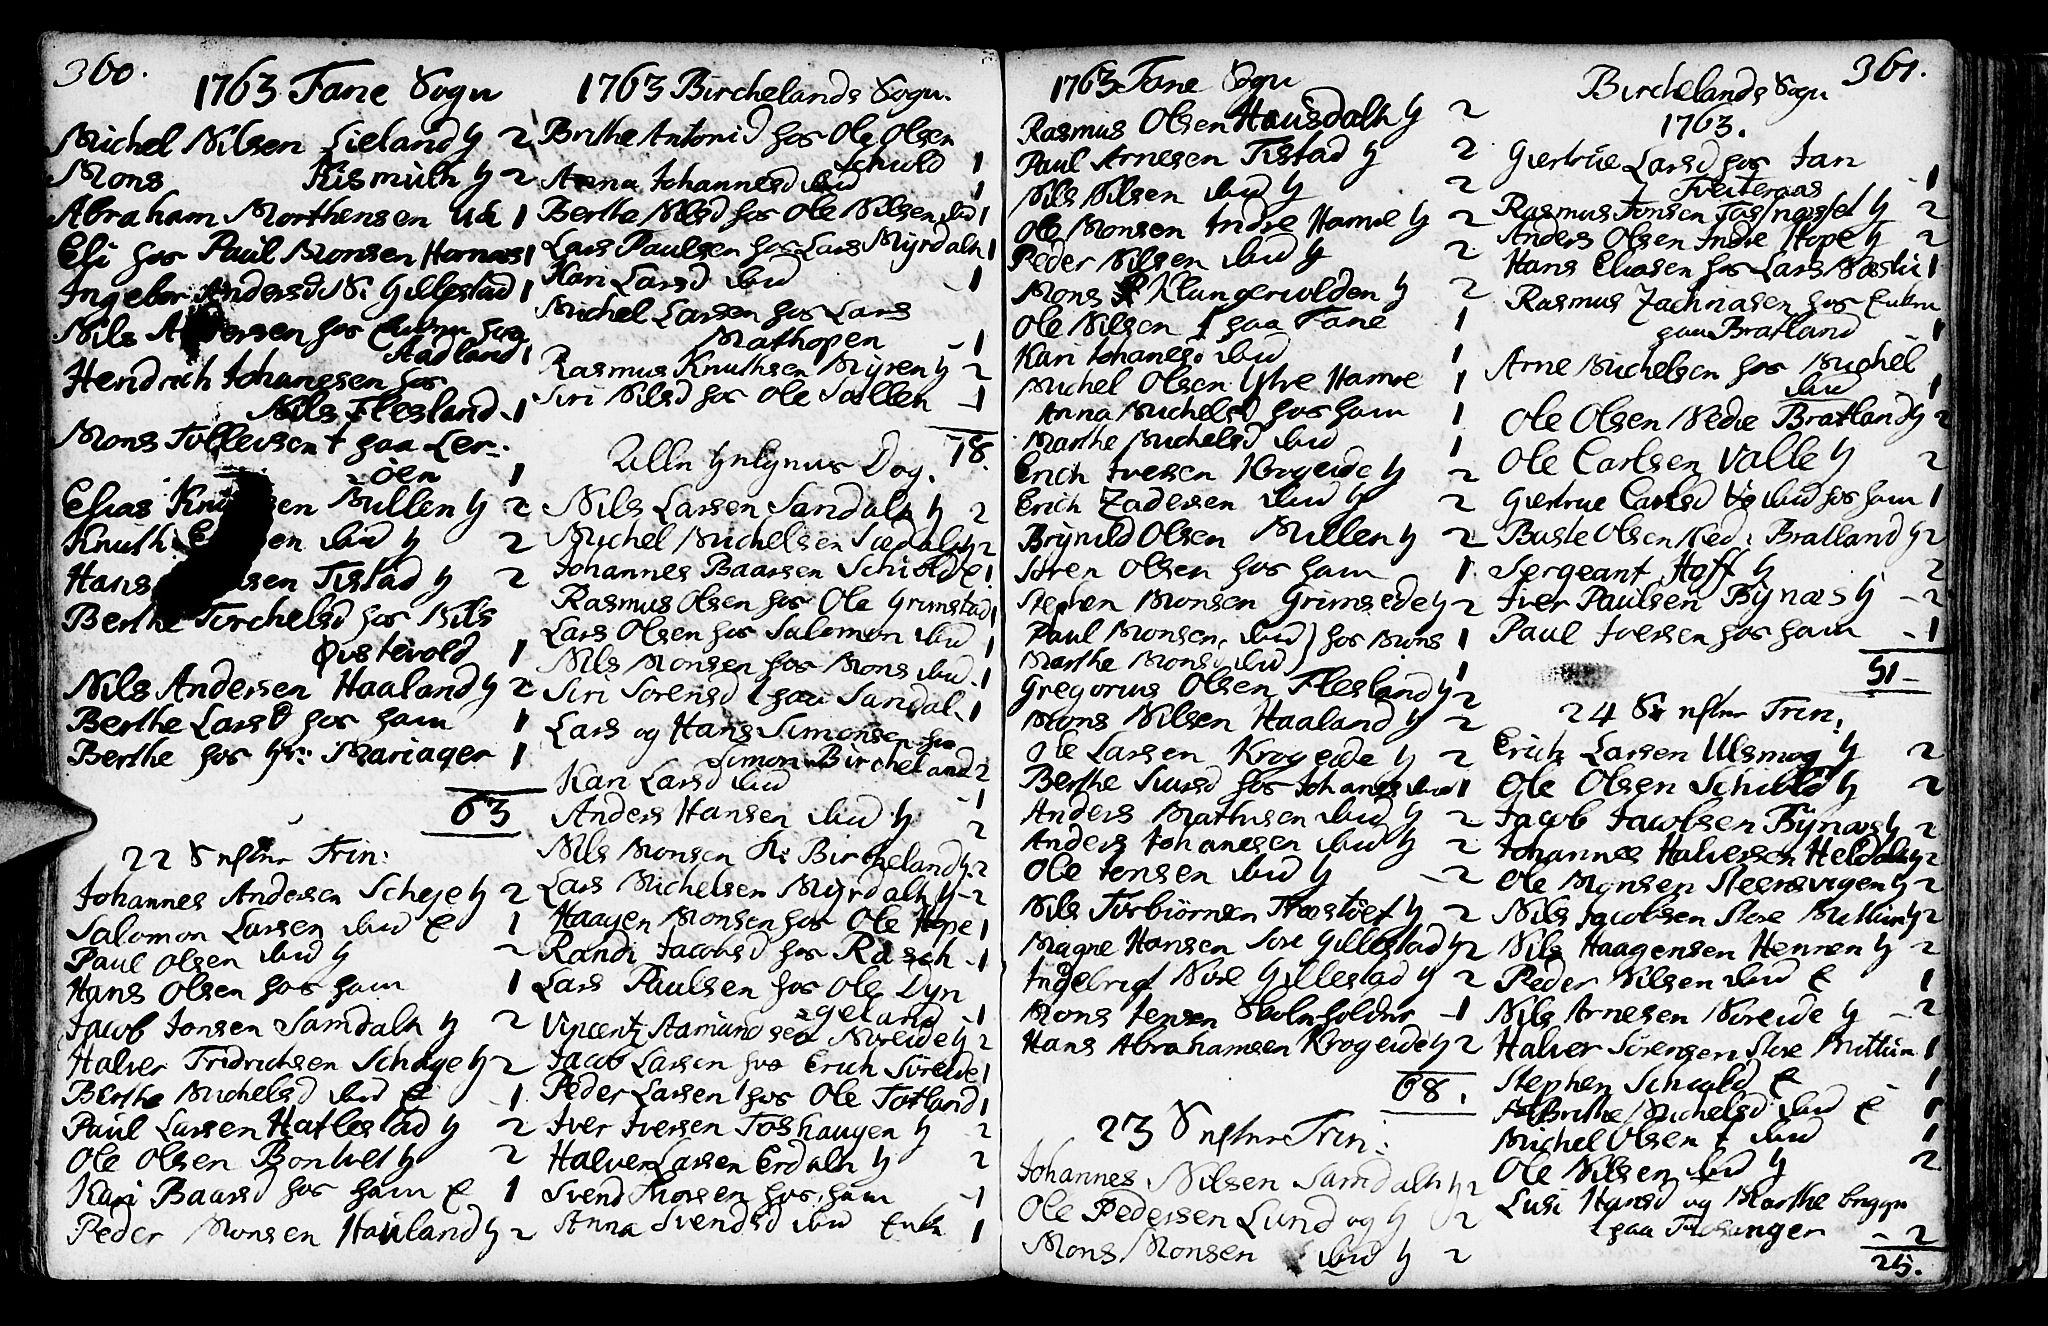 360.
1763 Fane Sogn
Michel Nilsen Lieland H 2
Mons Rismüln H 2
Abraham Morthensen 1
Eli hos Paul Monsen Hornæs 1
Ingebor Andersd N: Gillestad 1
Nils hos
Aadland 1
Hendrich Johannesen hos
Nils Flesland 1
Mons Tollevsen t paa Ler-
öen 1
Elias Bullen H 2
Knuth ibid H 2
Hans Tistad H 2
Berthe Torchelsd hos Nils
Øvstevold 1
Nils Andersen Haaland H 2
Berthe Larsd hos ham 1
Berthe hos Hr: Mariager 1
63
22 S efter Trin:
Johannes Andersen Scheje H 2
Salomon Larsen ibid E 1
Paul Olsen ibid H 2
Hans Olsen hos ham 1
Jacob Jonsen Samdaln H 2
Halver Fridrichsen Schage H 2
Berthe Michelsd ibid E 1
Paul Larsen Hatlestad H 2
Ole Olsen Bontvet H 2
Kari Baarsd hos ham E 1
Peder Monsen Hauland H 2
1763 Birchelands Sogn.
Brithe Antonid hos Ole Olsen
Schiold 1
Anna Johannesd ibid 1
Berthe Nilsd hos Ole Nilsen ibid 1
Lars Paulsen hos Lars Myrdaln 1
Kari Larsd ibid 1
Michel Larsen hos Lars
Mathopen 1
Rasmus Knuthsen Myren H 2
Siri Nilsd hos Ole Sællen 1
78.
Alle Helgens Dag.
Nils Larsen Sandaln H 2
Michel Michelsen Sædaln H 2
Johannes Baarsen Schiold E 1
Rasmus Olsen hos Ole Grimstad 1
Lars Olsen hos Salomon ibid 1
Nils Monsen hos Mons ibid 1
Siri Sorensd t paa Sandal 1
Lars og Hans Simonsen hos
Simon Bircheland 2
Kari Larsd ibid 1
Anders Hansen ibid H 2
Nils Monsen Bircheland H 2
Lars Michelsen Myrdaln H 2
Haagen Monsen hos Ole Hope 1
Randi Jacobsd hos Rasch 1
Lars Paulsen hos Ole Dyn
geland 1
Vincentz Aamundsen Noreide H 2
Jacob Larsen hos Erich Søreide 1
Peder Larsen hos Ole Totland 1
Iver Iversen Toshaugen H 2
Halver Larsen Erdaln H 2
Svend Thorsen hos ham 1
Anna Svendsd ibid Enke 1
1763 Fane Sogn
Rasmus Olsen Hausdaln H 2
Paul Arnesen Tistad H 2
Nils Nilsen ibid H 2
Ole Monsen Indre Hamre H 2
Peder Nilsen ibid H 2
Mons Klungervolden H 2
Ole Nilsen t paa Fane 1
Kari Johanesd ibid 1
Michel Olsen Ytre Hamre 1
Anna Michelsd hos ham 1
Marthe Michelsd ibid 1
Erich Iversen Krogeide H 2
Erich Zadersen ibid H 2
Brynild Olsen Millen H 2
Søren Olsen hos ham 1
Stephen Monsen Grimseide H 2
Paul Monsen ibid) hos Mons 1
Marthe Monsd ibid) 1
Gregorius Olsen Flesland H 2
Mons Nilsen Haaland H 2
Ole Larsen Krogeide H 2
Berthe Siursd hos Johanes ibid 1
Anders Mathisen ibid H 2
Anders Johanesen ibid H 2
Ole Jensen ibid H 2
Nils Torbiörnsen Træstöet H 2
Magne Hansen Sore Gillestad H 2
Ingebrigt Nore Gillestad H 2
Mons Jensen Skoleholder 1
Hans Abrahamsen Krogeide H 2
68.
23 S efter Trin:
Johannes Nilsen Samdaln H 2
Ole Pedersen Lund og H 2
Mons Monsen ibid H 2
361.
Birchelands Sogn
1763.
Giertrüe Larsd hos Jan
Tveiteraas 1
Rasmus Jonsen H 2
Anders Olsen Indre Hope H 2
Hans Eliasen hos Lars Næstu 1
Rasmus Zachriasen hos Enken
paa Bratland 1
Arne Michelsen hos Michel
ibid 1
Ole Olsen Nedre Bratland H 2
Ole Carlsen Valle H 2
Giertrue Carlsd ibid hos ham 1
Baste Olsen Ned: Bratland H 2
Sergeant Hoff H 2
Iver Paulsen Bynæs H 2
Paul Iversen hos ham 1
51
24 S efter Trin:
Erich Larsen Ulsmog H 2
Ole Olsen Schiold H 2
Jacob Jacobsen Bynæs H 2
Johannes Halversen Heldaln H 2
Ole Monsen Steensvigen H 2
Nils Jacobsen Store Milliim H 2
Nils Haagensen Hennen H 2
Peder Nilsen ibid E 1
Nils Arnesen Noreide H 2
Halver Sörensen Store 1
Stephen Schiold E 1
Brithe Michelsd ibid E 1
Michel Olsen t ibid 1
Ole Nilsen ibid H 2
Lusi Hansd og Marthe begge
t paa 2
25.